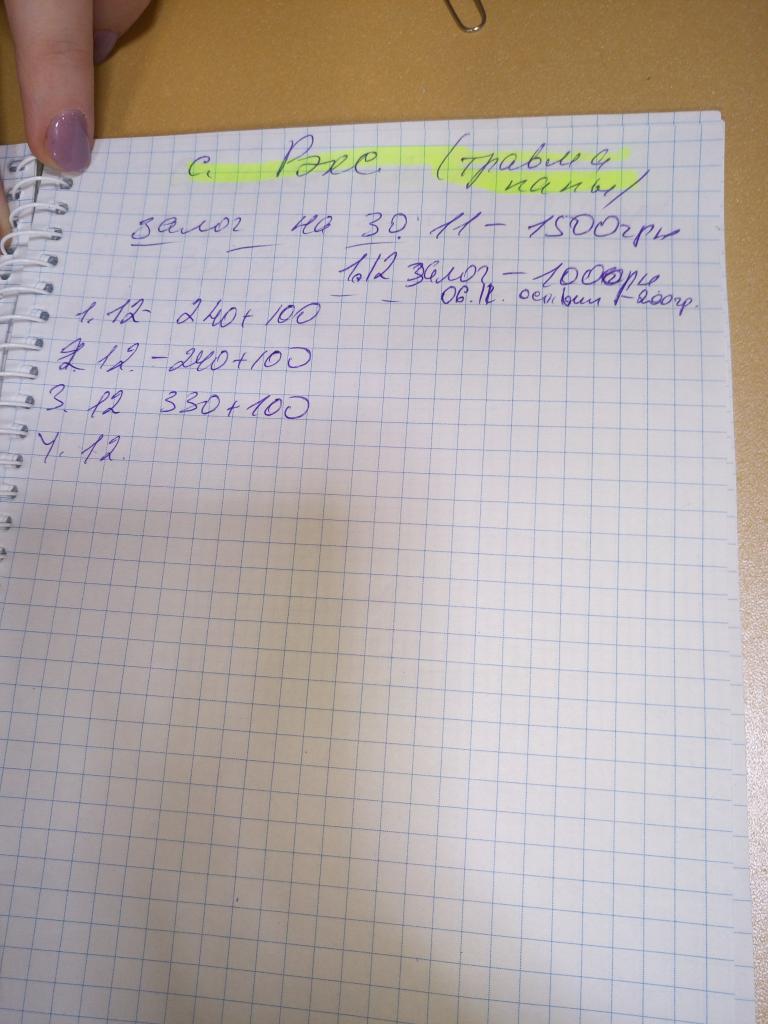 с. Рэкс (травма
папы)
залог на 30. 11 - 1500грн
1.12 залог - 1000грн
06.12. оставил - 200гр.
1. 12 - 240 + 100
2. 12. - 240 + 100
3. 12 330 + 100
4. 12.